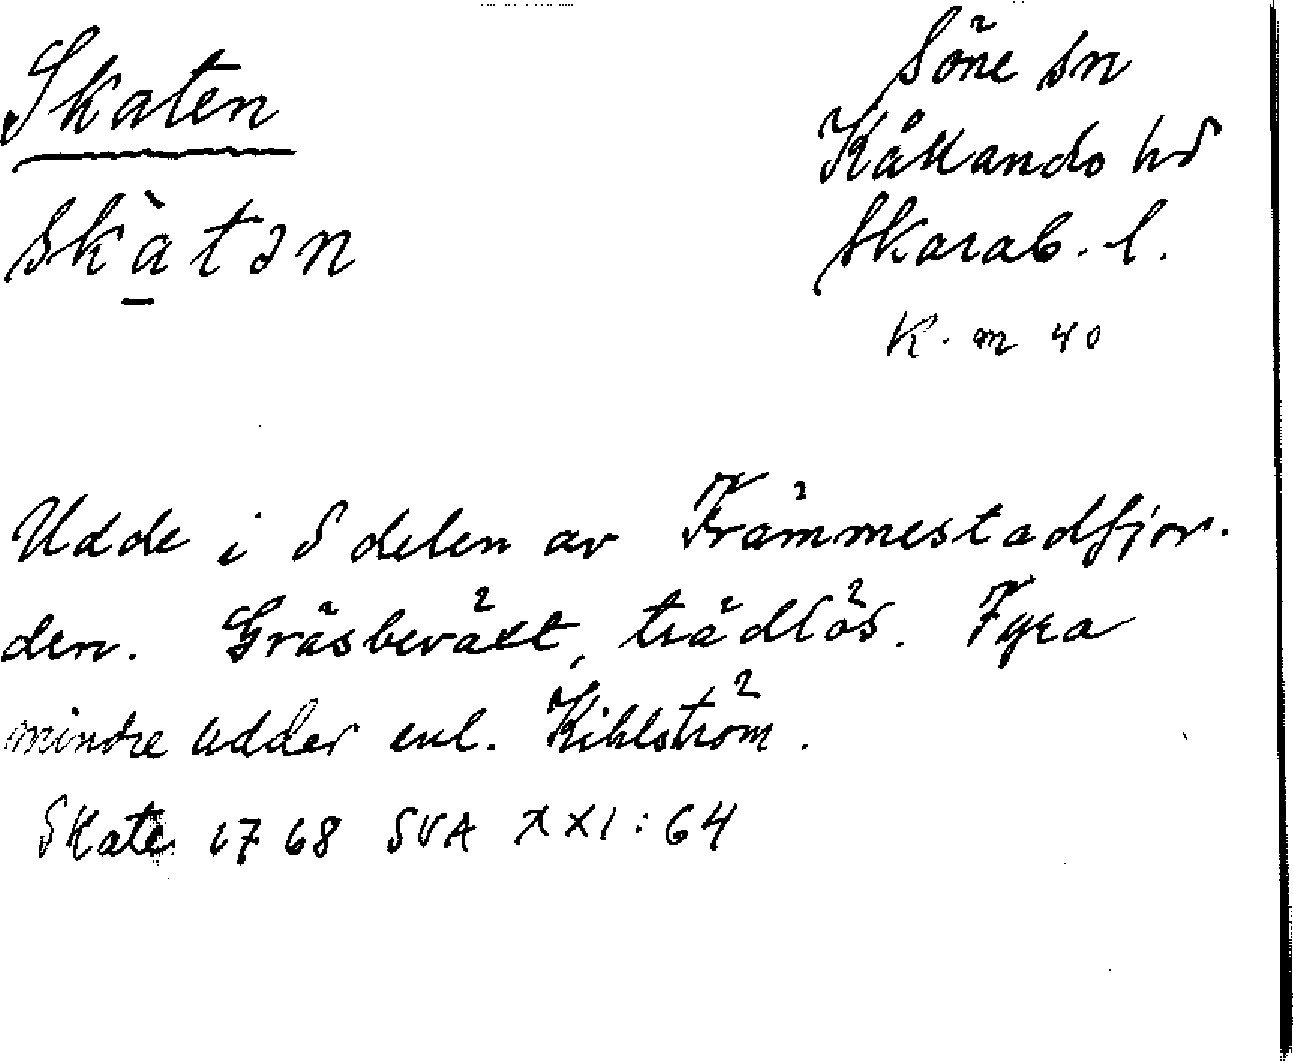 Skaten
skà̠tən
Söne sn
Kållands hd
Skarab. l.
K. m 40
Udde i S delen av Främmestadfjor-
den. Gräsbeväxt, trädlös. Fyra
mindre udder enl. Kihlström.
Skate 1768 SVA XXI:64